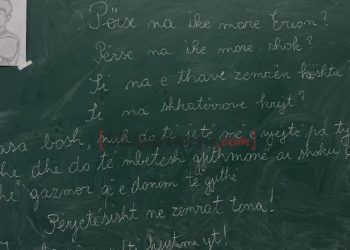 Përse na ike more Erion?
Përse na ike more shok?
Si na e thave zemrën kështu
Si na shkatërrove krejt?
asa bosh, nuk do të jetë më e njejtë pa ty
he dhe do të mbetesh gjithmonë ai shoku
hë gazmor që e donim të gjithë
Përjetësisht në zemrat tona!
.com]